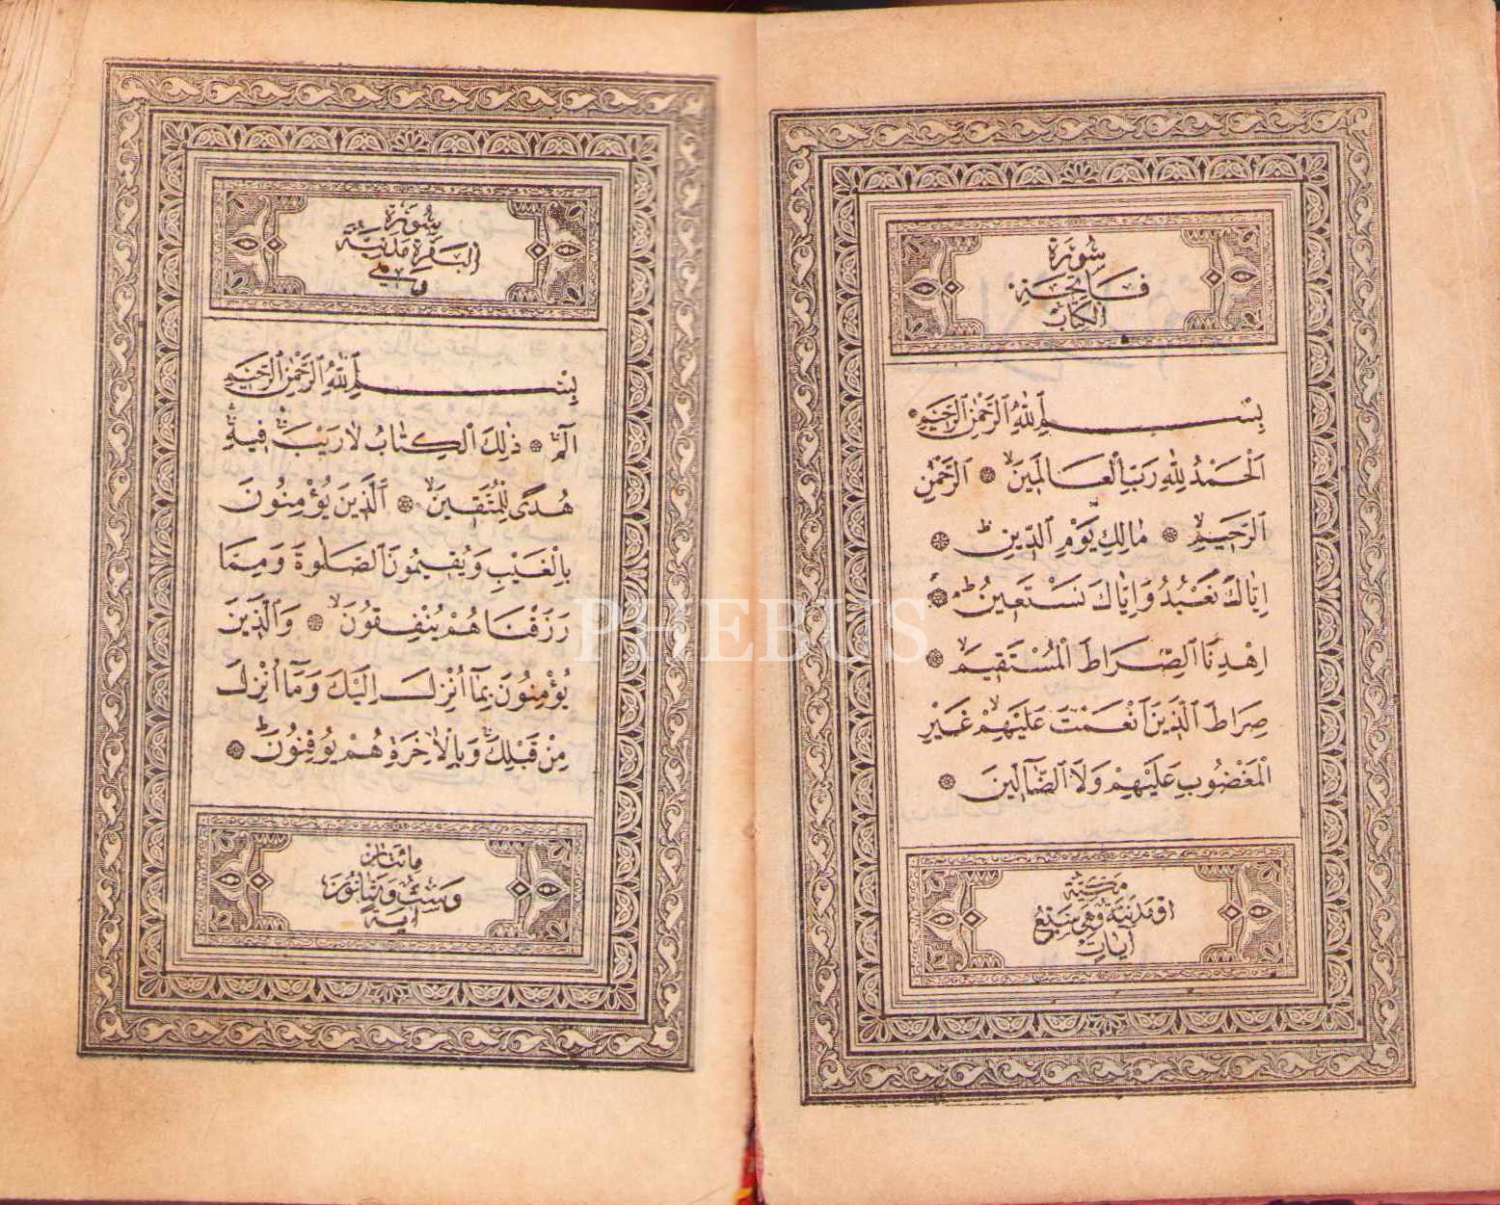 سُورَةُ
فَاتِحَةِ
الْكِتَابِ
بِسْمِ اللّٰهِ الرَّحْمٰنِ الرَّحِيمِ
اَلْحَمْدُ لِلّٰهِ رَبِّ الْعَالَمِينَۙ ۞ اَلرَّحْمٰنِ
الرَّحِيمِۙ ۞ مَالِكِ يَوْمِ الدِّينِۜ ۞
اِيَّاكَ نَعْبُدُ وَاِيَّاكَ نَسْتَعِينُۜ ۞
اِهْدِنَا الصِّرَاطَ الْمُسْتَقِيمَۙ ۞
صِرَاطَ الَّذِينَ اَنْعَمْتَ عَلَيْهِمْۙ غَيْرِ
الْمَغْضُوبِ عَلَيْهِمْ وَلَا الضَّالِّينَ ۞
مَكِّيَّة
اَوْ مَدَنِيَّة وَهِيَ سَبْعُ
آيَات
سُورَةُ
الْبَقَرَةِ مَدَنِيَّةٌ
وَهِيَ
بِسْمِ اللّٰهِ الرَّحْمٰنِ الرَّحِيمِ
الٓمٓۚ ۞ ذٰلِكَ الْكِتَابُ لَا رَيْبَۚۛ فِيهِۚۛ
هُدًى لِلْمُتَّقِينَۙ ۞ اَلَّذِينَ يُؤْمِنُونَ
بِالْغَيْبِ وَيُقِيمُونَ الصَّلٰوةَ وَمِمَّا
رَزَقْنَاهُمْ يُنْفِقُونَۙ ۞ وَالَّذِينَ
يُؤْمِنُونَ بِمَٓا اُنْزِلَ اِلَيْكَ وَمَٓا اُنْزِلَ
مِنْ قَبْلِكَۚ وَبِالْاٰخِرَةِ هُمْ يُوقِنُونَۜ ۞
مِائَتَانِ
وَسِتٌّ وَثَمَانُونَ
اٰيَة
PHEBUS